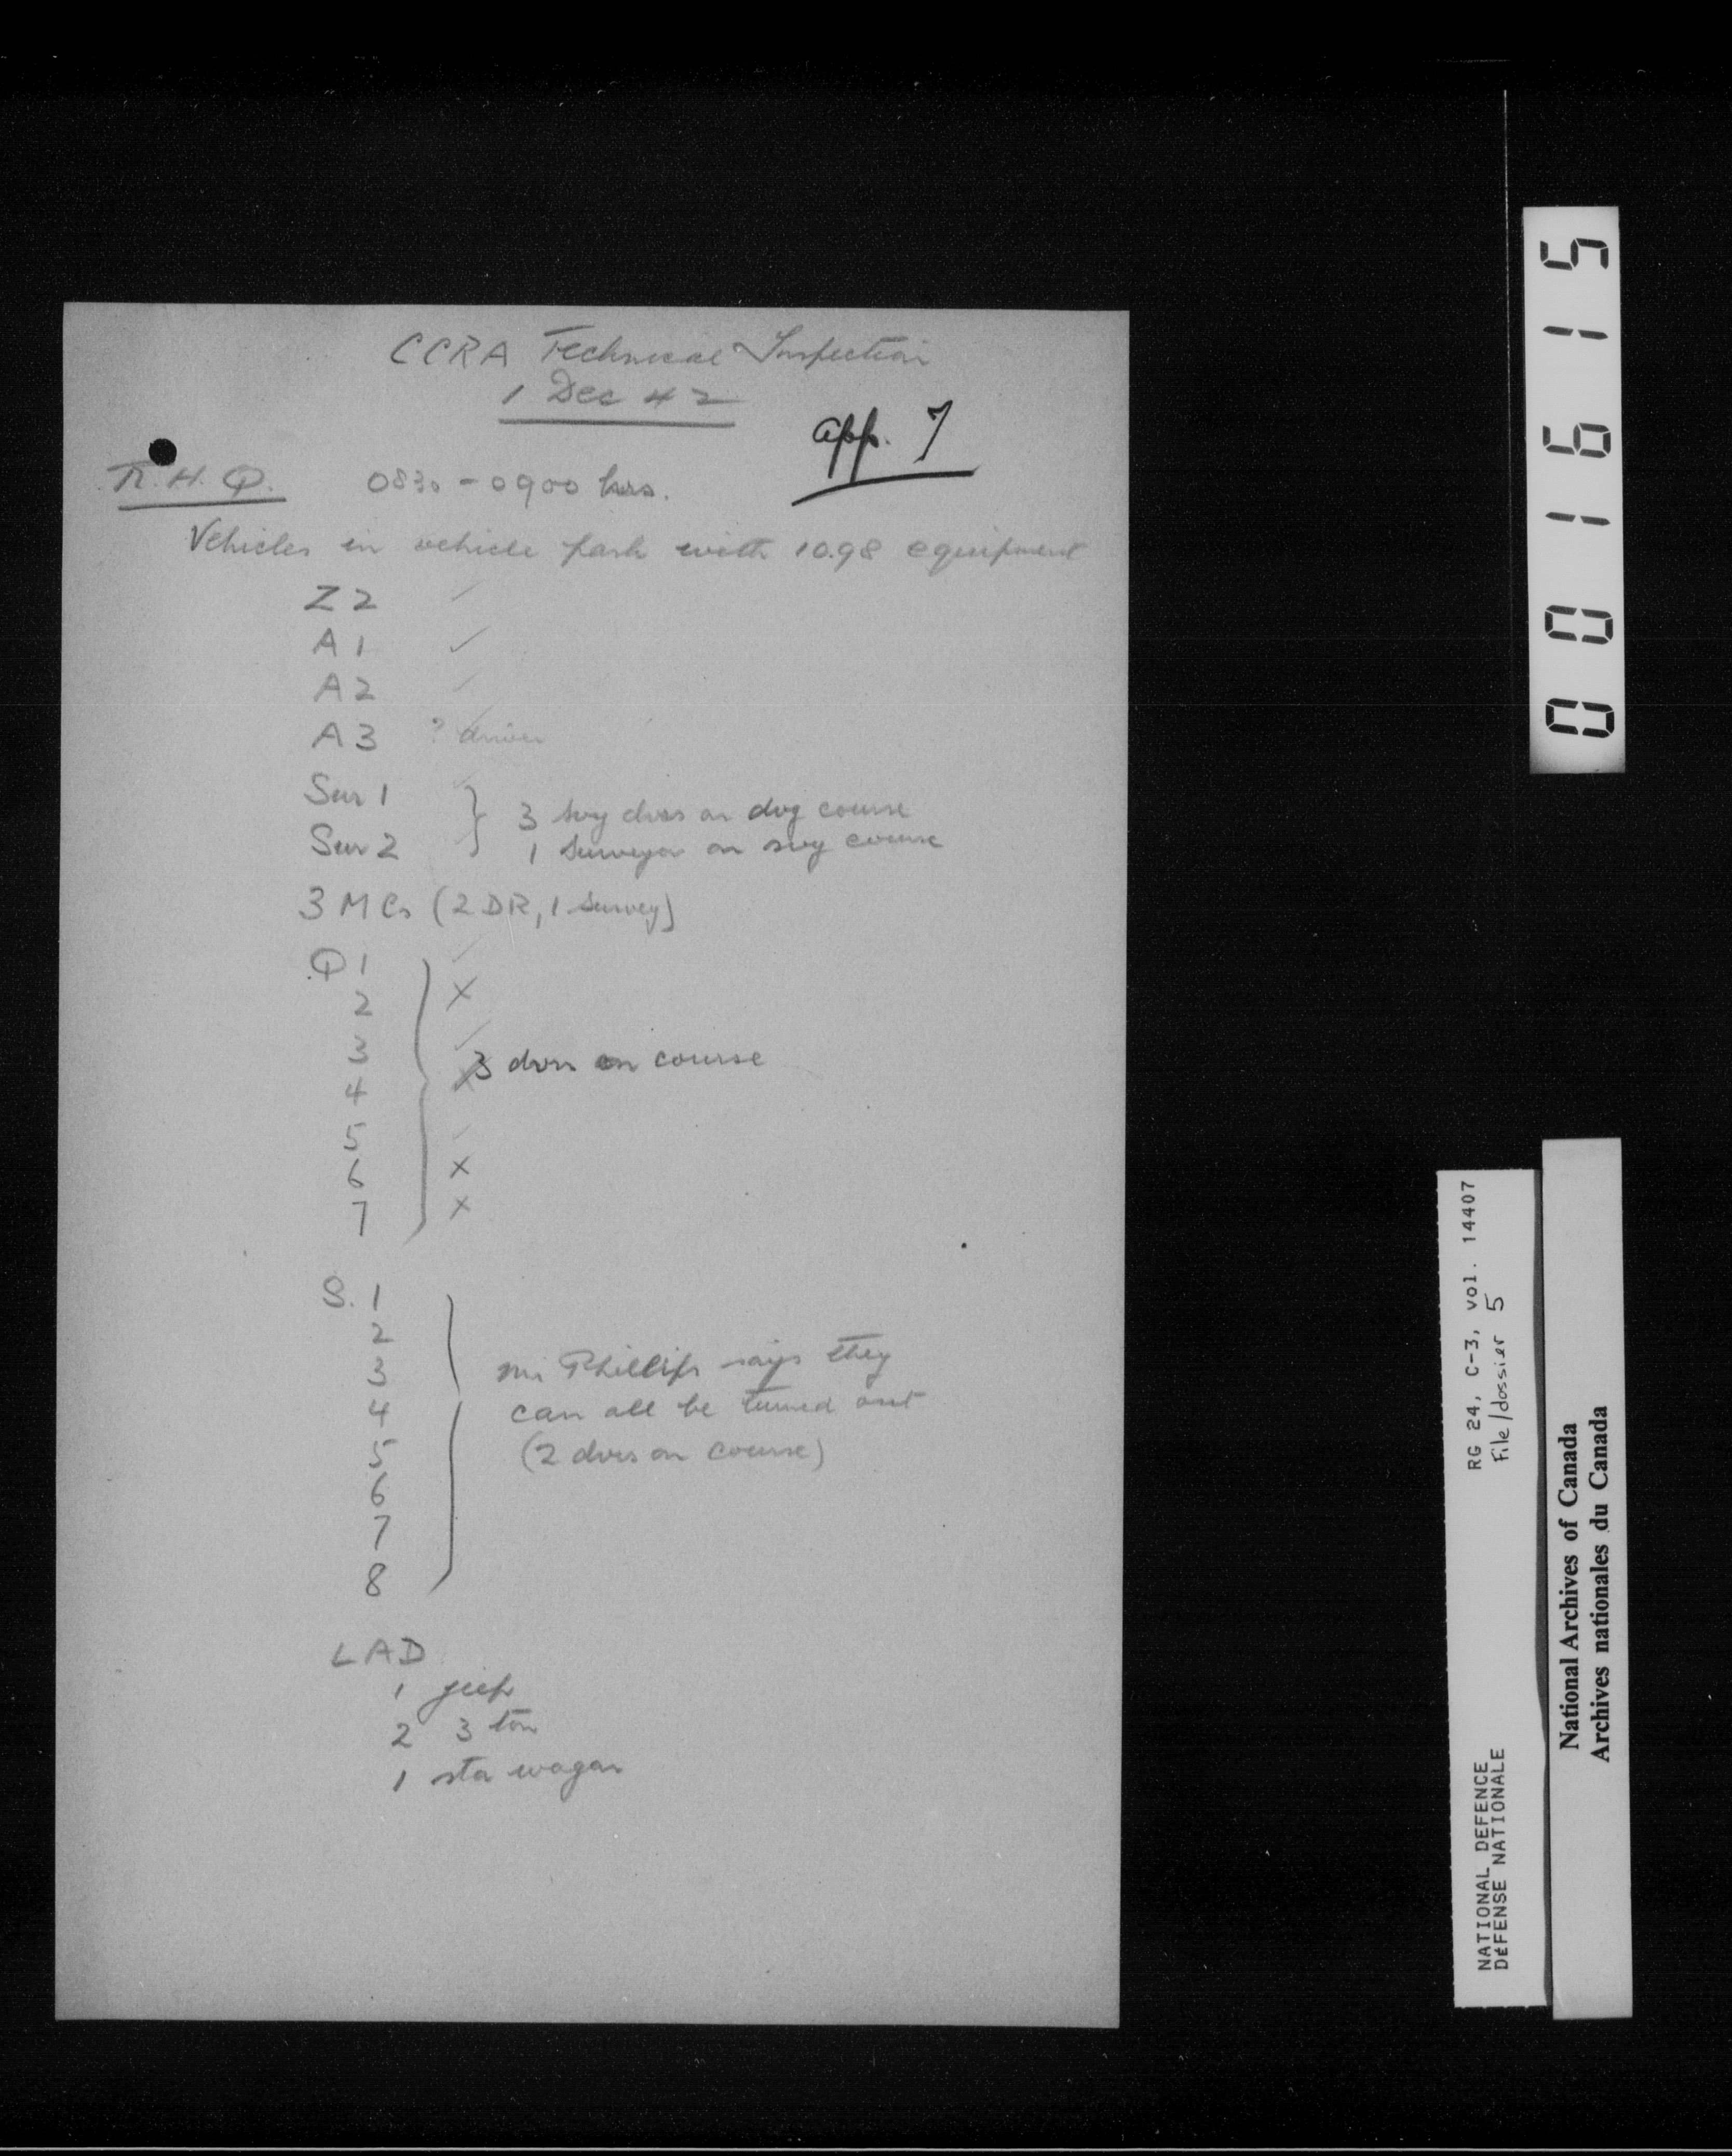 CCRA Technical Inspection
1 Dec 42
app. 7
R.H.Q. 0830 - 0900 hrs.
Vehicles in vehicle park with 1098 equipment
Z 2 ✓
A 1 ✓
A 2 ✓
A 3 ? driver
Sur 1 ✓
Sur 2
} 3 svy dvrs on dvg course
1 Surveyor on svy course
3 MCs (2 DR, 1 Survey)
Q 1 ✓
2 X
3 ✓
3 dvrs on course
4 X
5 ✓
6 X
7 X
S. 1
2
3
4
5
6
7
8
Mr Phillips says they
can all be turned out
(2 dvrs on course)
LAD
1 jeep
2 3 ton
1 sta wagon
001615
RG 24, C-3, vol. 14407
File/dossier 5
NATIONAL DEFENCE
DÉFENSE NATIONALE
National Archives of Canada
Archives nationales du Canada